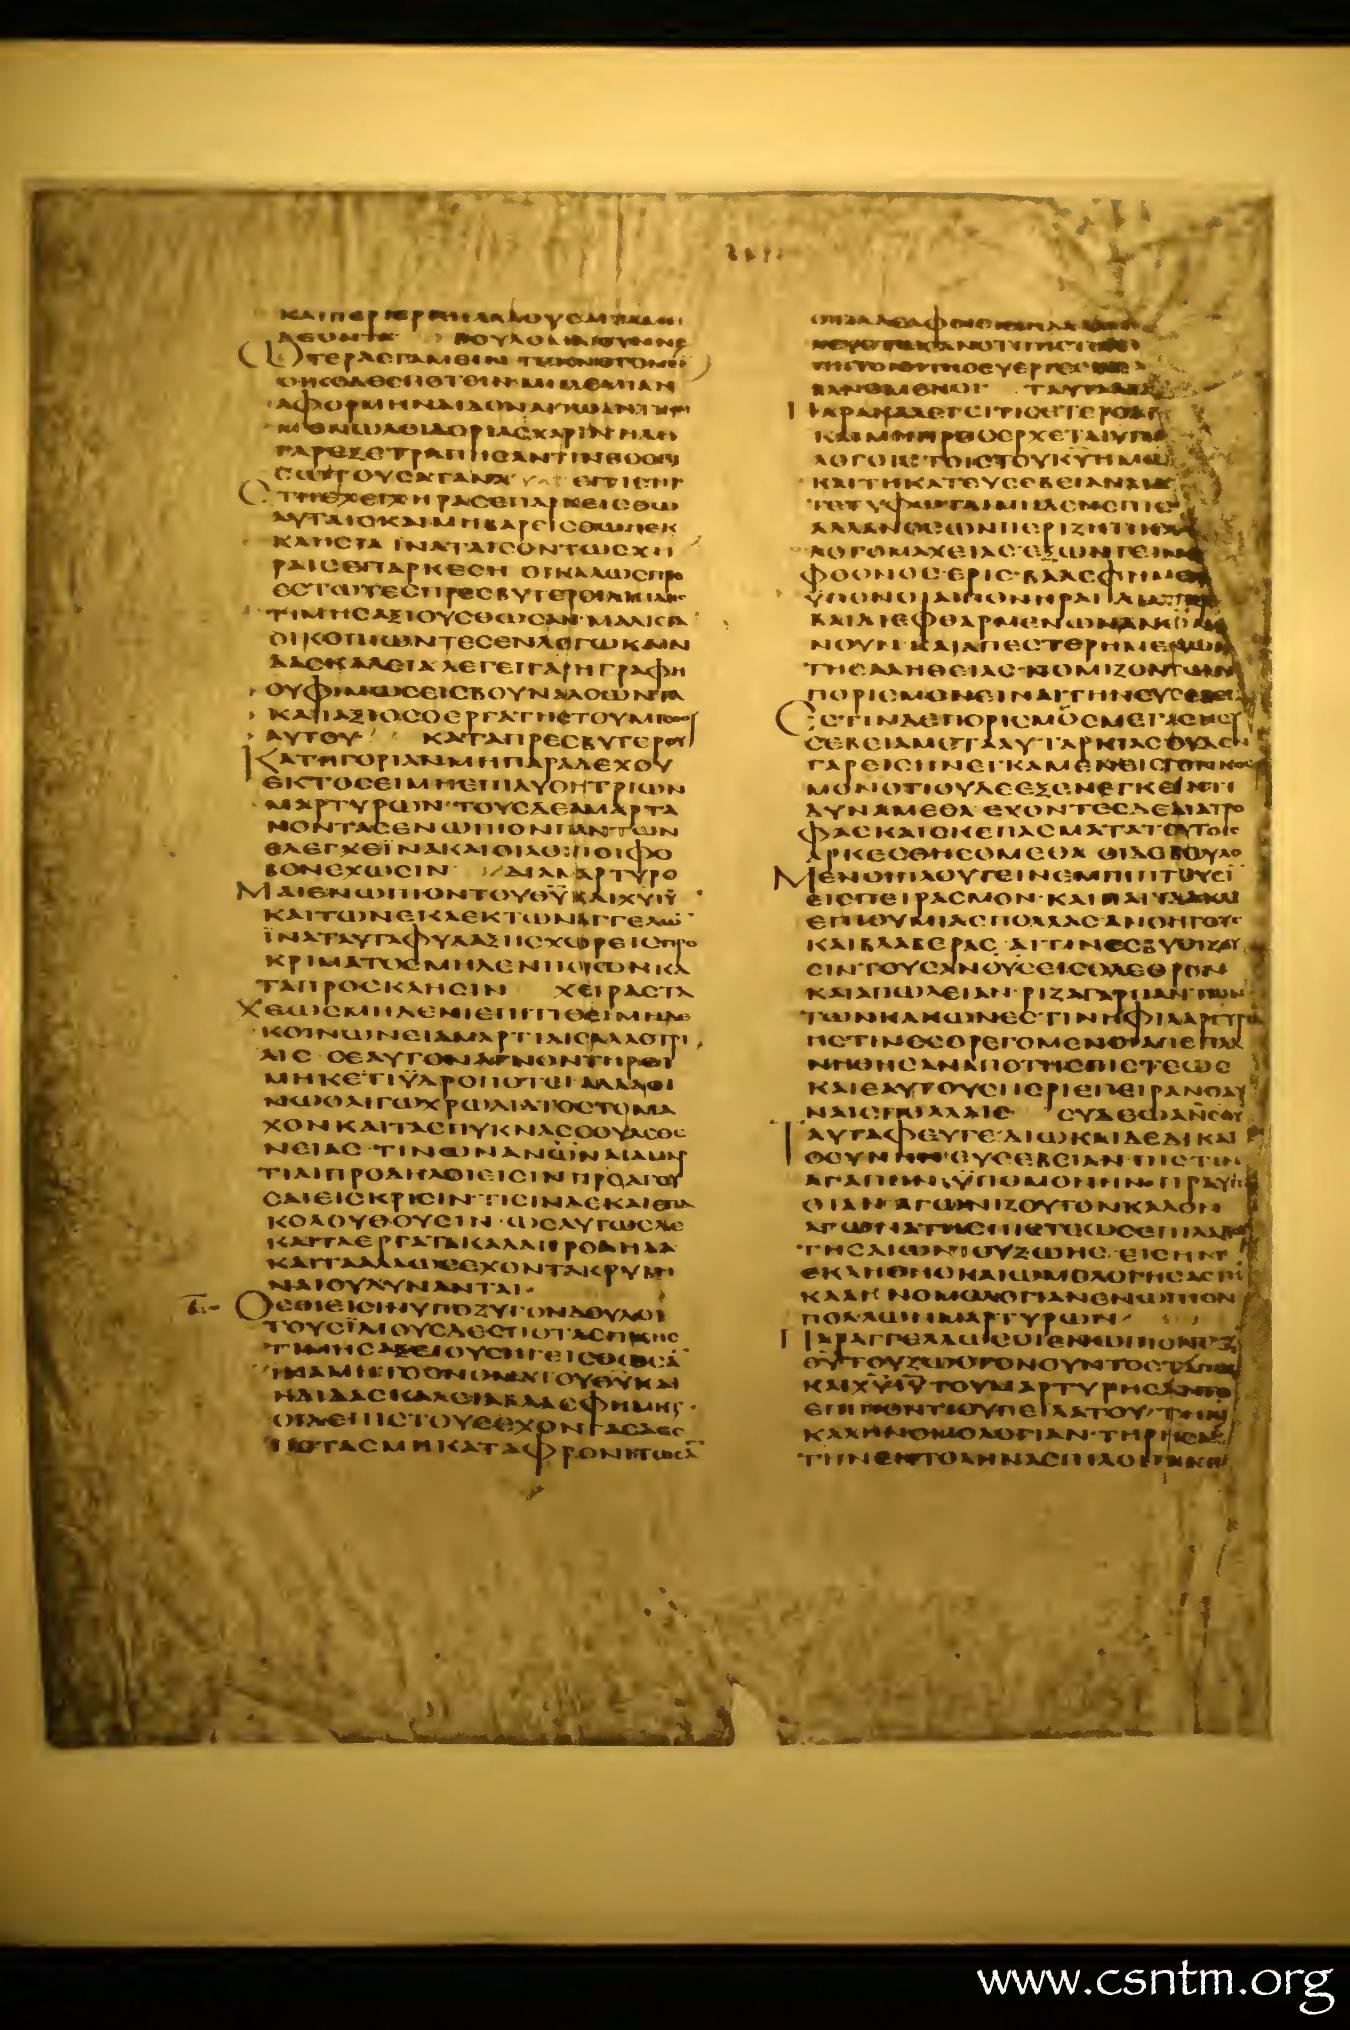 ΟΥΝΝΕ
ΩΤΕΡΑΣΓΑΜΕΙΝ ΤΕΚΝΟΓΟΝΕΙ
ΟΙΚΟΔΕΣΠΟΤΕΙΝ ΜΗΔΕΜΙΑΝ
ΑΦΟΡΜΗΝΔΙΔΟΝΑΙ
ΛΟΙΔΟΡΙΑΣΧΑΡΙΝ ΗΔΗ
ΓΑΡΕΞΕΤΡΑΠΗΣΑΝΤΙΝΕΣΟΠΙ
ΣΩΤΟΥΣΑΤΑΝΑ ΕΙΤΙΣΠΙ
ΣΤΗΕΧΕΙΧΗΡΑΣΕΠΑΡΚΕΙΣΘΩ
ΑΥΤΑΙΣΚΑΙΜΗΒΑΡΕΙΣΘΩΗΕΚ
ΚΛΗΣΙΑ ΙΝΑΤΑΙΣΟΝΤΩΣΧΗ
ΡΑΙΣΕΠΑΡΚΕΣΗ ΟΙΚΑΛΩΣΠΡΟ
ΕΣΤΩΤΕΣΠΡΕΣΒΥΤΕΡΟΙΔΙΠΛΗΣ
ΤΙΜΗΣΑΞΙΟΥΣΘΩΣΑΝ ΜΑΛΙΣΤΑ
ΟΙΚΟΠΙΩΝΤΕΣΕΝΛΟΓΩΚΑΙΔΙ
ΔΑΣΚΑΛΕΙΑ ΛΕΓΕΙΓΑΡΗΓΡΑΦΗ
ΟΥΦΙΜΩΣΕΙΣΒΟΥΝΑΛΟΩΝΤΑ
ΚΑΙΑΞΙΟΣΟΕΡΓΑΤΗΣΤΟΥΜΙΣΘΟΥ
ΑΥΤΟΥ ΚΑΤΑΠΡΕΣΒΥΤΕΡΟΥ
ΚΑΤΗΓΟΡΙΑΝΜΗΠΑΡΑΔΕΧΟΥ
ΕΚΤΟΣΕΙΜΗΕΠΙΔΥΟΗΤΡΙΩΝ
ΜΑΡΤΥΡΩΝ ΤΟΥΣΔΕΑΜΑΡΤΑ
ΝΟΝΤΑΣΕΝΩΠΙΟΝΠΑΝΤΩΝ
ΕΛΕΓΧΕΪΝΑΚΑΙΟΙΛΟΙΠΟΙΦΟ
ΒΟΝΕΧΩΣΙΝ ΔΙΑΜΑΡΤΥΡΟ
ΜΑΙΕΝΩΠΙΟΝΤΟΥΘΥΚΑΙΧΥΙΥ
ΚΑΙΤΩΝΕΚΛΕΚΤΩΝΑΓΓΕΛΩ
ΪΝΑΤΑΥΤΑΦΥΛΑΞΗΣΧΩΡΕΙΣΠΡΟ
ΚΡΙΜΑΤΟΣΜΗΔΕΝΠΟΙΩΝΚΑ
ΤΑΠΡΟΣΚΛΗΣΙΝ ΧΕΙΡΑΣΤΑ
ΧΕΩΣΜΗΔΕΝΙΕΠΙΤΙΘΕΙΜΗΔΕ
ΚΟΙΝΩΝΕΙΑΜΑΡΤΙΑΙΣΑΛΛΟΤΡΙ
ΑΙΣ ΣΕΑΥΤΟΝΑΓΝΟΝΤΗΡΕΙ
ΜΗΚΕΤΙΫΔΡΟΠΟΤΕΙ ΑΛΛΑΟΙ
ΝΩΟΛΙΓΩΧΡΩΔΙΑΤΟΣΤΟΜΑ
ΧΟΝΚΑΙΤΑΣΠΥΚΝΑΣΣΟΥΑΣΘΕ
ΝΕΙΑΣ ΤΙΝΩΝΑΝΩΝΑΙΑΜΑΡ
ΤΙΑΙΠΡΟΔΗΛΟΙΕΙΣΙΝΠΡΟΑΓΟΥ
ΣΑΙΕΙΣΚΡΙΣΙΝ ΤΙΣΙΝΔΕΚΑΙΕΠΑ
ΚΟΛΟΥΘΟΥΣΙΝ ΩΣΑΥΤΩΣΔΕ
ΚΑΙΤΑΕΡΓΑΤΑΚΑΛΑΠΡΟΔΗΛΑ
ΚΑΙΤΑΑΛΛΩΣΕΧΟΝΤΑΚΡΥΒΗ
ΝΑΙΟΥΔΥΝΑΝΤΑΙ
ΟΣΟΙΕΙΣΙΝΥΠΟΖΥΓΟΝΔΟΥΛΟΙ
ΤΟΥΣΙΔΙΟΥΣΔΕΣΠΟΤΑΣΠΑΣΗΣ
ΤΙΜΗΣΑΞΕΙΟΥΣΗΓΕΙΣΘΩΣΑ
ΙΝΑΜΗΤΟΟΝΟΜΑΤΟΥΘΥΚΑΙ
ΗΔΙΔΑΣΚΑΛΕΙΑΒΛΑΣΦΗΜΗΤ
ΟΙΔΕΠΙΣΤΟΥΣΕΧΟΝΤΑΣΔΕΣ
ΠΟΤΑΣΜΗΚΑΤΑΦΡΟΝΙΤΩΣΑ
ΠΑΡΑΚΑΛΕΙΕΙΤΙΣΕΤΕΡΟΔΙ
ΚΑΙΜΗΠΡΟΣΕΡΧΕΤΑΙΥΓΙΑ
ΛΟΓΟΙΣΤΟΙΣΤΟΥΚΥΗΜΩ
ΚΑΙΤΗΚΑΤΕΥΣΕΒΕΙΑΝΔΙΔΑ
ΤΕΤΥΦΩΤΑΙΜΗΔΕΝΕΠΙΣ
ΑΛΛΑΝΟΣΩΝΠΕΡΙΖΗΤΗΣΕΙΣ
ΛΟΓΟΜΑΧΕΙΑΣ ΕΞΩΝΓΕΙΝΕ
ΦΘΟΝΟΣ ΕΡΙΣ ΒΛΑΣΦΗΜΙΑΙ
ΫΠΟΝΟΙΑΙΠΟΝΗΡΑΙ
ΒΑΙΔΙΕΦΘΑΡΜΕΝΩΝΑΝΩΝ
ΝΟΥΝ ΚΑΙΑΠΕΣΤΕΡΗΜΕΝΩΝ
ΤΗΣΑΛΗΘΕΙΑΣ ΝΟΜΙΖΟΝΤΩΝ
ΠΟΡΙΣΜΟΝΕΙΝΑΙΤΗΝΕΥΣΕΒΕΙ
ΕΣΤΙΝΔΕΠΟΡΙΣΜΟΣΜΕΓΑΣΗΕΥ
ΣΕΒΕΙΑΜΕΤΑΑΥΤΑΡΚΙΑΣΟΥΔΕΝ
ΓΑΡΕΙΣΗΝΕΓΚΑΜΕΝΕΙΣΤΟΝΚΟ
ΜΟΝΟΤΙΟΥΔΕΕΞΕΝΕΓΚΕΙΝΤΙ
ΔΥΝΑΜΕΘΑ ΕΧΟΝΤΕΣΔΕΔΙΑΤΡΟ
ΦΑΣΚΑΙΣΚΕΠΑΣΜΑΤΑΤΟΥΤΟΙΣ
ΑΡΚΕΣΘΗΣΟΜΕΘΑ ΟΙΔΕΒΟΥΛΟ
ΜΕΝΟΙΠΛΟΥΤΕΙΝΕΜΠΙΠΤΟΥΣΙ
ΕΙΣΠΕΙΡΑΣΜΟΝ ΚΑΙΠΑΓΙΔΑΚΑΙ
ΕΠΙΘΥΜΙΑΣΠΟΛΛΑΣΑΝΟΗΤΟΥΣ
ΚΑΙΒΛΑΒΕΡΑΣ ΑΙΤΙΝΕΣΒΥΘΙΖΟΥ
ΣΙΝΤΟΥΣΑΝΟΥΣΕΙΣΟΛΕΘΡΟΝ
ΚΑΙΑΠΩΛΕΙΑΝ ΡΙΖΑΓΑΡΠΑΝ
ΤΩΝΚΑΚΩΝΕΣΤΙΝΗΦΙΛΑΡΓΥΡΙΑ
ΗΣΤΙΝΕΣΟΡΕΓΟΜΕΝΟΙΑΠΕΠΛΑ
ΝΗΘΗΣΑΝΑΠΟΤΗΣΠΙΣΤΕΩΣ
ΚΑΙΕΑΥΤΟΥΣΠΕΡΙΕΠΕΙΡΑΝΟΔΥ
ΝΑΙΣΠΟΛΛΑΙΣ ΣΥΔΕΩΑΝΕΘΥ
ΤΑΥΤΑΦΕΥΓΕ ΔΙΩΚΑΙΔΕΔΙΚΑΙ
ΟΣΥΝΗΝ ΕΥΣΕΒΕΙΑΝ ΠΙΣΤΙΝ
ΑΓΑΠΗΝ ΫΠΟΜΟΝΗΝ ΠΡΑΫΠΑ
ΘΙΑΝ ΑΓΩΝΙΖΟΥΤΟΝΚΑΛΟΝ
ΑΓΩΝΑΤΗΣΠΙΣΤΕΩΣΕΠΙΛΑΒΟΥ
ΤΗΣΑΙΩΝΙΟΥΖΩΗΣ ΕΙΣΗΝ
ΕΚΛΗΘΗΣΚΑΙΩΜΟΛΟΓΗΣΑΣΤΗ
ΚΑΛΗΝΟΜΟΛΟΓΙΑΝΕΝΩΠΙΟΝ
ΠΟΛΛΩΝΜΑΡΤΥΡΩΝ
ΠΑΡΑΓΓΕΛΛΩΣΟΙΕΝΩΠΙΟΝΤΟΥ
ΘΥΤΟΥΖΩΟΓΟΝΟΥΝΤΟΣΤΑΠΑΝ
ΚΑΙΧΥΙΥΤΟΥΜΑΡΤΥΡΗΣΑΝΤΟ
ΕΠΙΠΟΝΤΙΟΥΠΕΙΛΑΤΟΥ ΤΗΝ
ΚΑΛΗΝΟΜΟΛΟΓΙΑΝ ΤΗΡΗΣΑΙ
ΤΗΝΕΝΤΟΛΗΝΑΣΠΙΛΟΝ
www.csntm.org